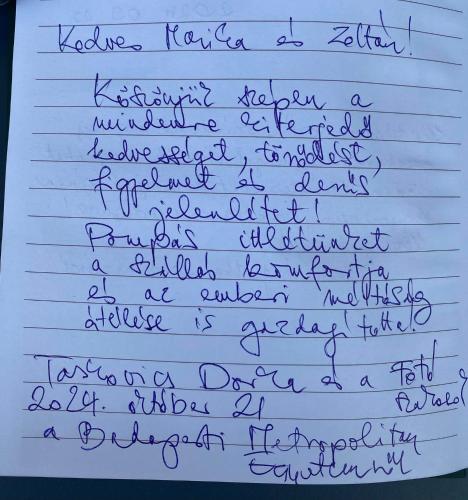 Kedves Marika és Zoltán!
Köszönjük szépen a
mindenre kiterjedő
kedvességet, törődést,
figyelmet és derűs
jelenlétet!
Pompás ittlétünket
a szállás komfortja
és az emberi méltóság
átélése is gazdagította.
Taskovics Dorka és a Fotó
2024. október 21
a Budapesti Metropolitan